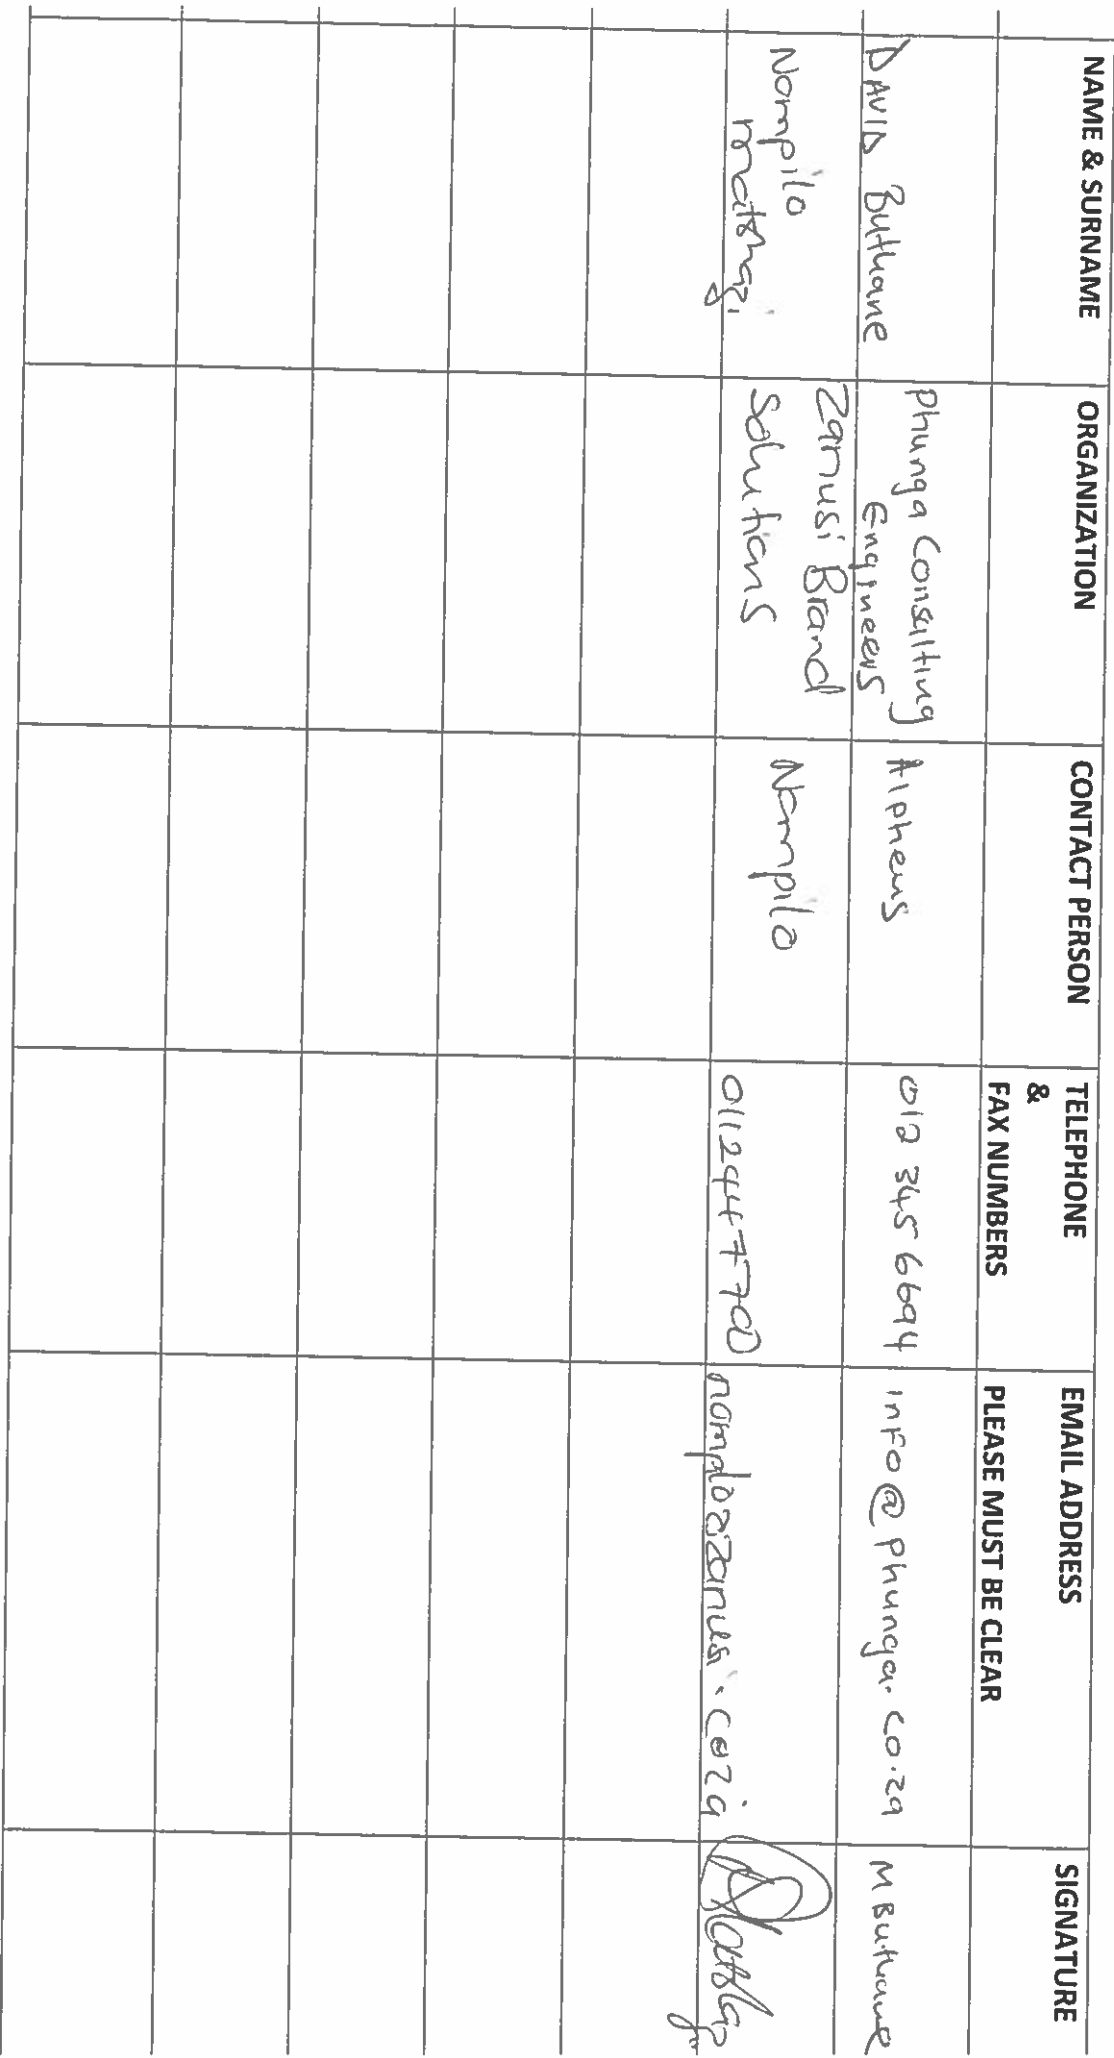 NAME & SURNAME
ORGANIZATION
CONTACT PERSON
TELEPHONE
&
FAX NUMBERS
EMAIL ADDRESS
PLEASE MUST BE CLEAR
SIGNATURE
DAVID Buthane
Phunga Consulting
Engineers
Alpheus
012 345 6694
info@phunga.co.za
M Buthane
Nompilo
Zanusi Brand
Solutions
Nompilo
0112447700